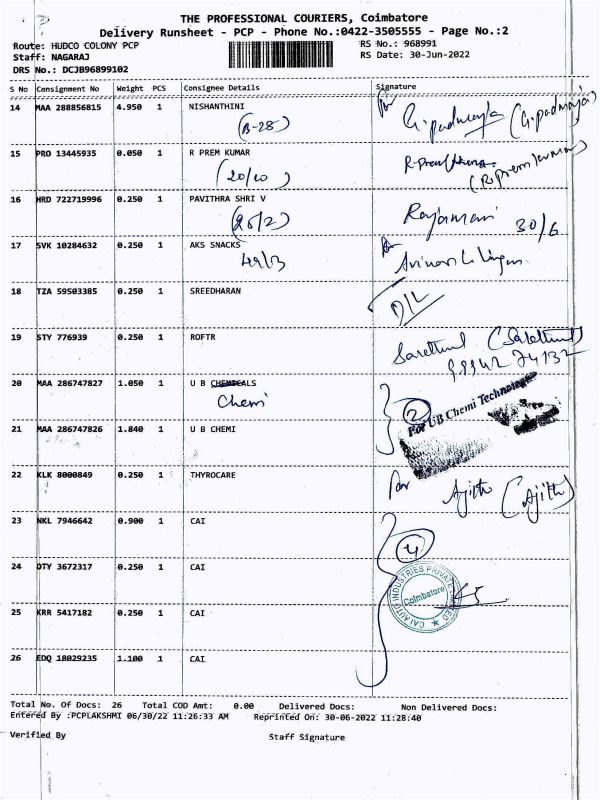 THE PROFESSIONAL COURIERS, Coimbatore
Delivery Runsheet - PCP - Phone No.:0422-3505555 - Page No.:2
Route: HUDCO COLONY PCP RS No.: 968991
Staff: NAGARAJ RS Date: 30-Jun-2022
DRS No.: DCJB96899102
S No Consignment No Weight PCS Consignee Details Signature
14 MAA 288856815 4.950 1 NISHANTHINI
(B-28) G.padmaja (G.padmaja)
15 PRO 13445935 0.050 1 R PREM KUMAR
(20/10) (R.Premkumar)
16 HRD 722719996 0.250 1 PAVITHRA SHRI V
Rajamani 30/6
17 SVK 10284632 0.250 1 AKS SNACKS
49/3
18 TZA 59503385 0.250 1 SREEDHARAN
D/L
19 STY 776939 0.250 1 ROFTR
98942 74132
20 MAA 286747827 1.050 1 U B CHEMICALS
Chemi 2
For UB Chemi Technologies
21 MAA 286747826 1.840 1 U B CHEMI
22 KLK 8000849 0.250 1 THYROCARE
for Ajith (Ajith)
23 NKL 7946642 0.900 1 CAI
4
24 OTY 3672317 0.250 1 CAI
CAI INDUSTRIES PRIVATE LIMITED
Coimbatore
25 KRR 5417182 0.250 1 CAI
26 EDQ 18029235 1.100 1 CAI
Total No. Of Docs: 26 Total COD Amt: 0.00 Delivered Docs: Non Delivered Docs:
Entered By :PCPLAKSHMI 06/30/22 11:26:33 AM Reprinted On: 30-06-2022 11:28:40
Verified By Staff Signature